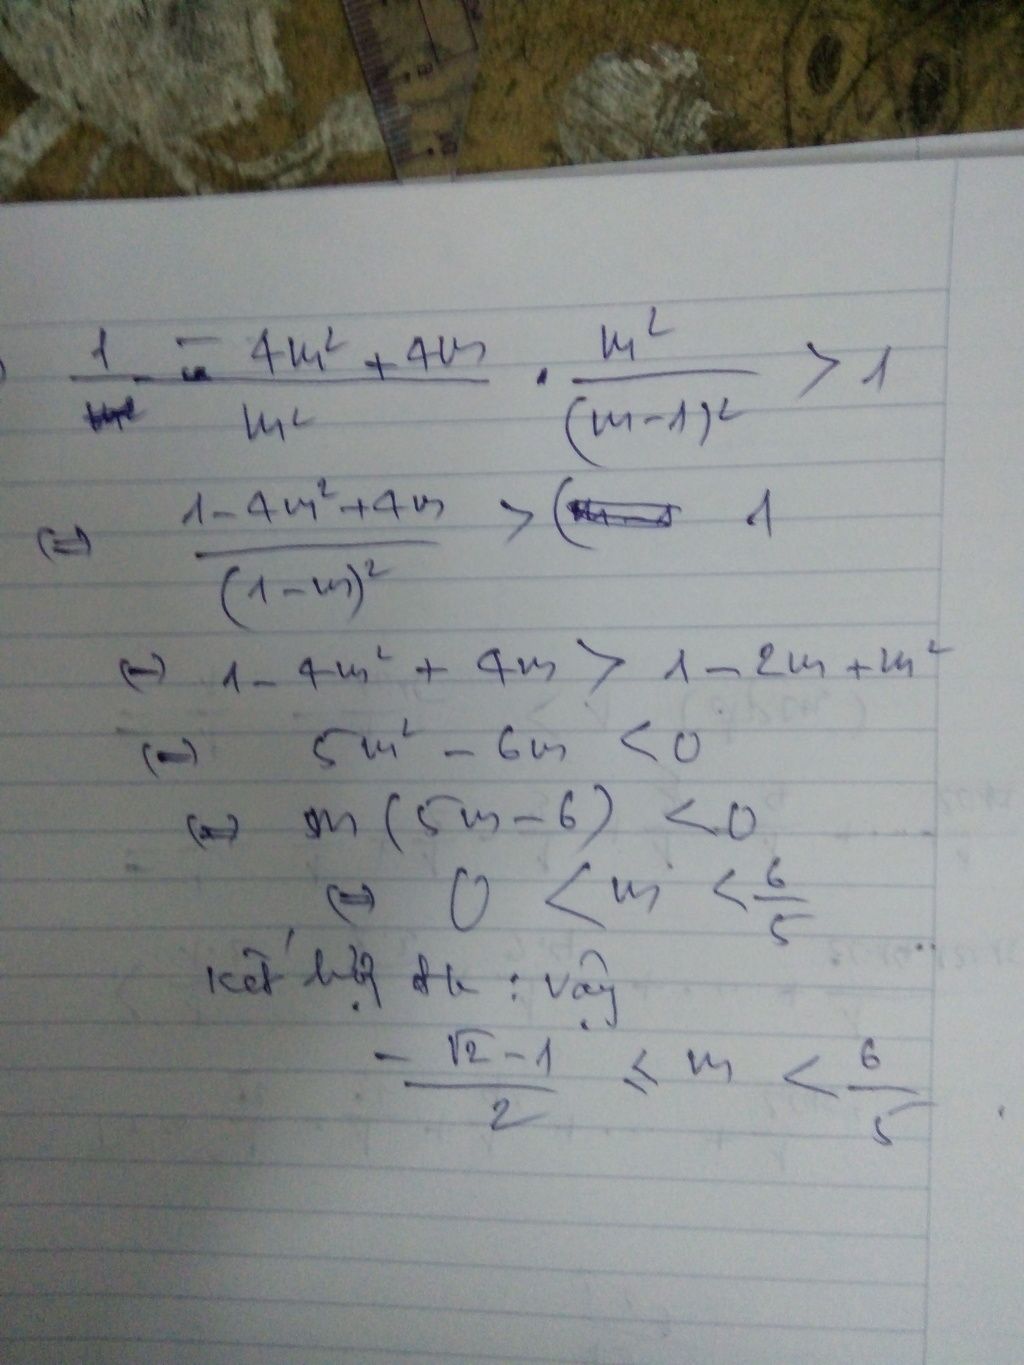 1 - 4m² + 4m / m² . m² / (m-1)² > 1
(=) 1 - 4m² + 4m / (1-m)² > ( 1
(=) 1 - 4m² + 4m > 1 - 2m + m²
(=) 5m² - 6m < 0
(=) m (5m - 6) < 0
(=) 0 < m < 6/5
Kết hợp đk : vậy
- √2 - 1 / 2 ≤ m < 6/5